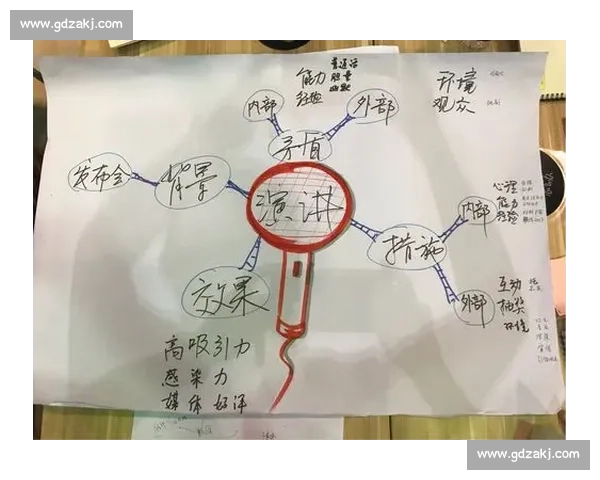 www.gdzakj.com
能力
经验
普通话
胆量
幽默
环境
观众
内部
外部
矛盾
发布会
背景
演讲
心理
能力
经验
内部
措施
效果
外部
互动
抽奖
环境
高吸引力
感染力
媒体好评
www.gdzakj.com